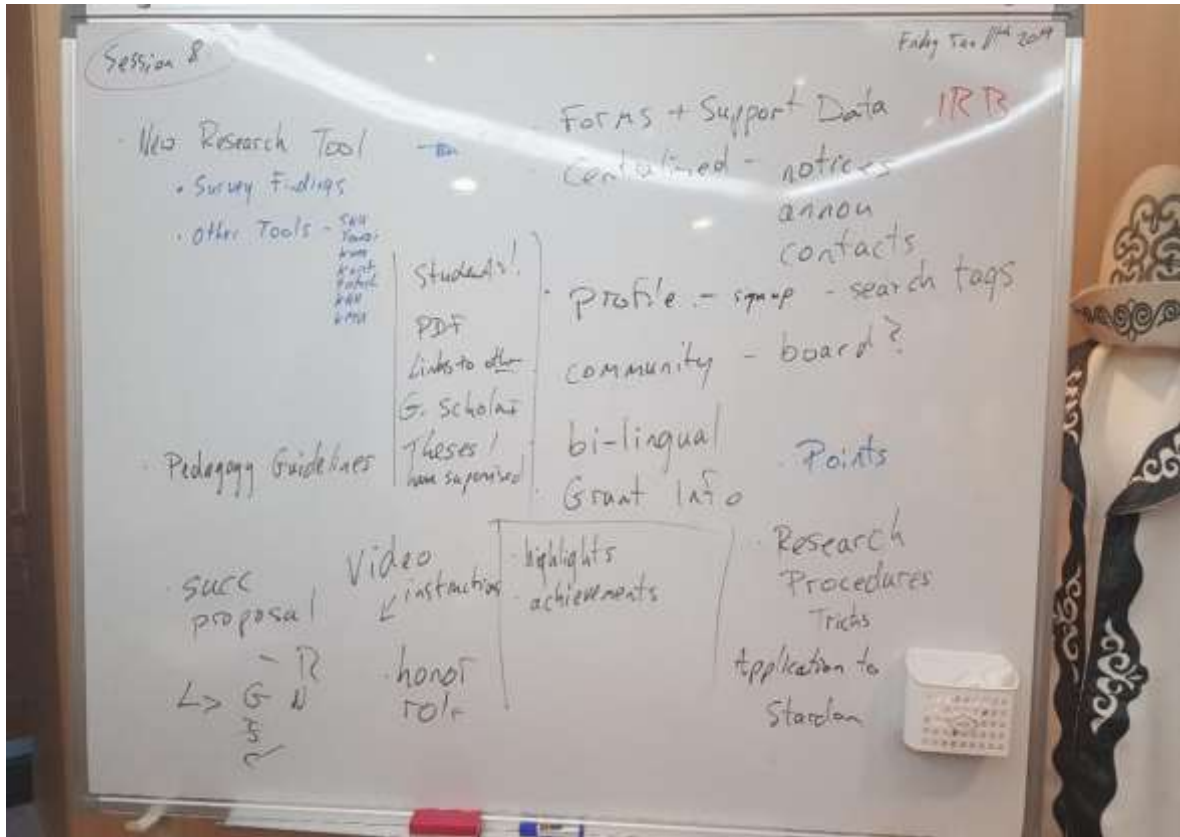 Session 8
Friday Jan 2019
· New Research Tool
• Survey Findings
• Other Tools -
Students!
PDF
Links to other
G. Scholar
Theses /
have supervised
· Pedagogy Guidelines
· Forms + Support Data
IRB
Centralized - notices
annou
contacts
· profile - sign up - search tags
community - board?
bi-lingual
· Grant Info
· Points
· succ
proposal
- R
↳ G N
Video
instructions
· honor
role
· highlights
· achievements
· Research
Procedures
Tricks
Application to